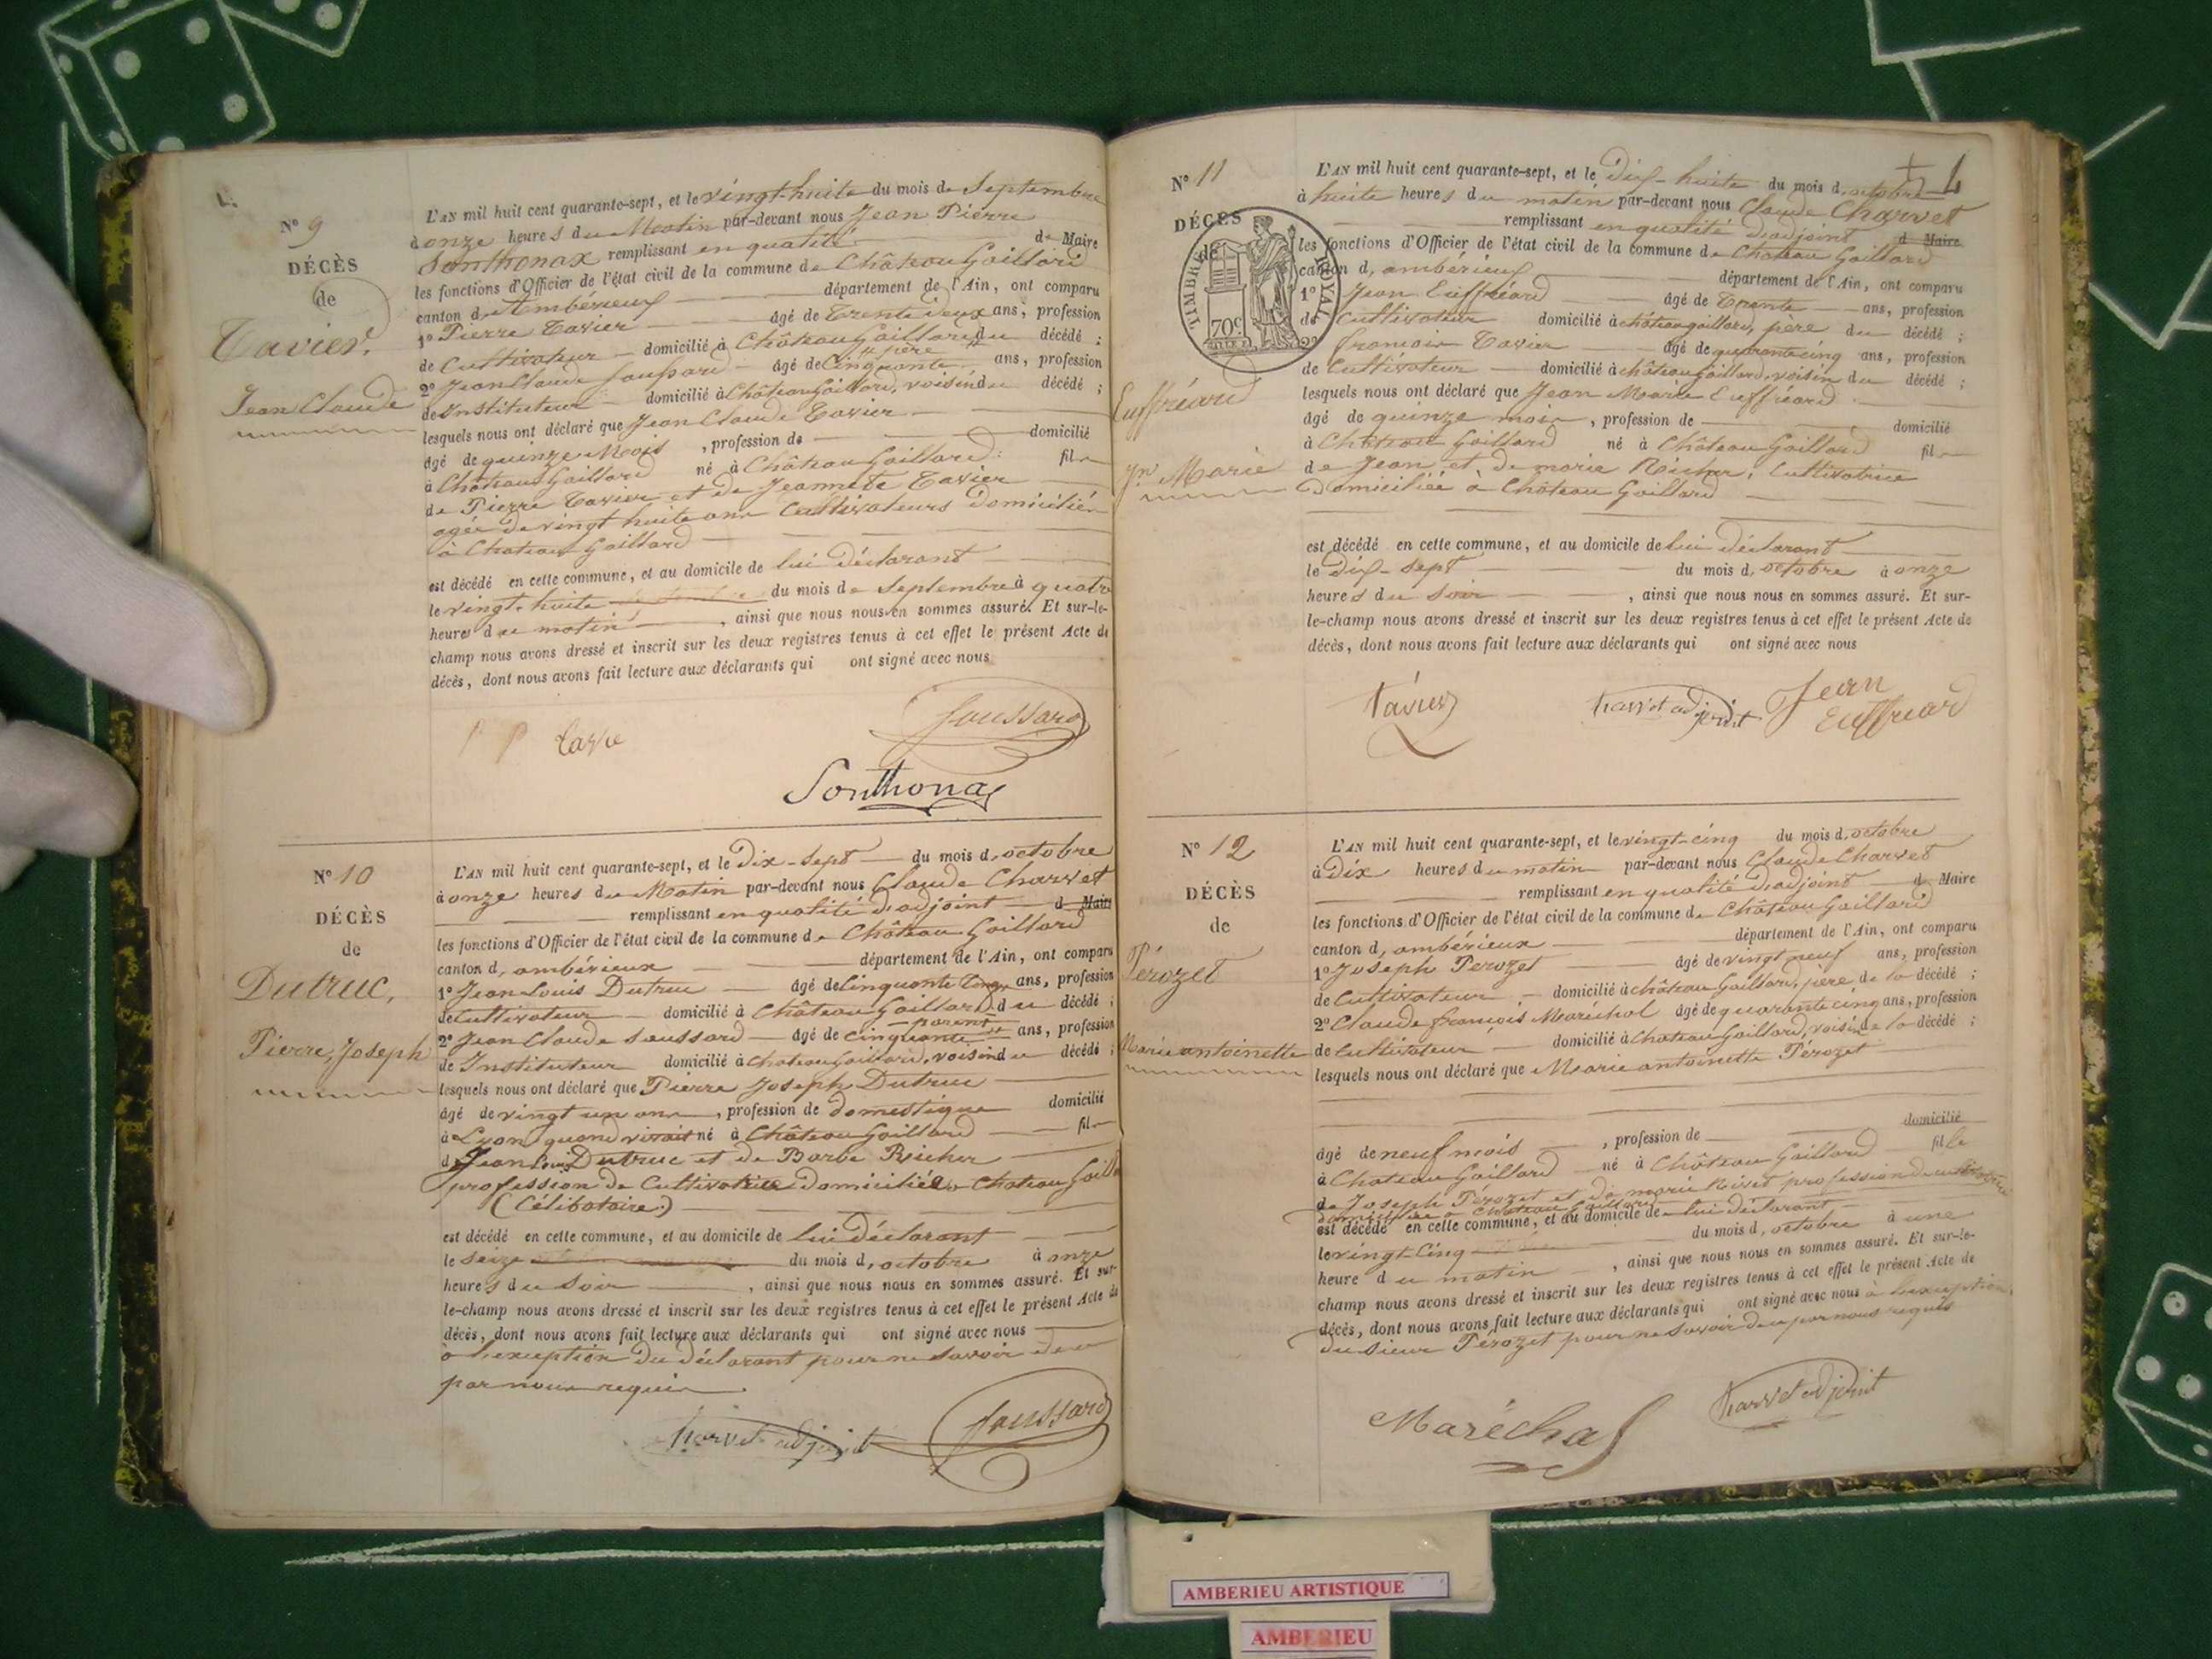 N° 9
DÉCÈS
de
Tavier,
Jean Claude
L'AN mil huit cent quarante-sept, et le vingt-huite du mois de Septembre
à onze heures du Matin par-devant nous Jean Pierre
Sonthonax remplissant en qualité de Maire
les fonctions d'Officier de l'état civil de la commune de Château Gaillard
canton d'Ambérieux département de l'Ain, ont comparu
1° Pierre Tavier âgé de Trente deux ans, profession
de Cultivateur domicilié à Château Gaillard, père du décédé ;
2° Jean Claude Saussard âgé de Cinquante ans, profession
de Instituteur domicilié à Château Gaillard, voisin du décédé ;
lesquels nous ont déclaré que Jean Claude Tavier
âgé de quinze Mois , profession de domicilié
à Château Gaillard né à Château Gaillard fils
de Pierre Tavier et de Jeannette Tavier
agée de vingt huite ans Cultivateurs Domiciliés
à Chateau Gaillard
est décédé en cette commune, et au domicile de lui déclarant
le vingt-huite du mois de Septembre à quatre
heures du matin , ainsi que nous nous en sommes assuré. Et sur-le-
champ nous avons dressé et inscrit sur les deux registres tenus à cet effet le présent Acte de
décès, dont nous avons fait lecture aux déclarants qui ont signé avec nous
Saussard
Sonthonax
N° 10
DÉCÈS
de
Dutruc,
Pierre, Joseph
L'AN mil huit cent quarante-sept, et le Dix-sept du mois d'octobre
à onze heures du Matin par-devant nous Claude Charvet
remplissant en qualité d'adjoint d Maire
les fonctions d'Officier de l'état civil de la commune de Château Gaillard
canton d'ambérieux département de l'Ain, ont comparu
1° Jean Louis Dutruc âgé de Cinquante cinq ans, profession
de Cultivateur domicilié à Château Gaillard, parent du décédé ;
2° Jean Claude Saussard âgé de cinquante ans, profession
de Instituteur domicilié à Chateau Gaillard, voisin du décédé ;
lesquels nous ont déclaré que Pierre Joseph Dutruc
âgé de vingt un ans , profession de domestique domicilié
à Lyon quand vivait né à Château Gaillard fils
de Jean Louis Dutruc et de Barbe Richer
profession de Cultivatrice domiciliée a Chateau Gaill
(Célibataire)
est décédé en cette commune, et au domicile de lui déclarant
le seize du mois d'octobre à onze
heures du Soir , ainsi que nous nous en sommes assuré. Et sur-
le-champ nous avons dressé et inscrit sur les deux registres tenus à cet effet le présent Acte de
décès, dont nous avons fait lecture aux déclarants qui ont signé avec nous
à l'exception du déclarant pour ne savoir de ce
par nous requis.
Charvet adjoint Saussard
N° 11
DÉCÈS
de
TIMBRE ROYAL
70c
Euffréard
Jn Marie
L'AN mil huit cent quarante-sept, et le Dix-huite du mois d'octobre
à huite heures du matin par-devant nous Claude Charvet
remplissant en qualité d'adjoint d Maire
les fonctions d'Officier de l'état civil de la commune de Chateau Gaillard
canton d'ambérieux département de l'Ain, ont comparu
1° Jean Euffréard âgé de Trente ans, profession
de Cultivateur domicilié à château gaillard, père du décédé ;
2° francois Tavier âgé de quarante cinq ans, profession
de Cultivateur domicilié à château Gaillard, voisin du décédé ;
lesquels nous ont déclaré que Jean Marie Euffréard
âgé de quinze mois , profession de domicilié
à Château Gaillard né à Château Gaillard fils
de Jean et de marie Richer, Cultivatrice
Domiciliée a Château Gaillard
est décédé en cette commune, et au domicile de lui déclarant
le Dix-sept du mois d'octobre à onze
heures du Soir , ainsi que nous nous en sommes assuré. Et sur-
le-champ nous avons dressé et inscrit sur les deux registres tenus à cet effet le présent Acte de
décès, dont nous avons fait lecture aux déclarants qui ont signé avec nous
Tavier Charvet adjoint Jean
Euffreard
N° 12
DÉCÈS
de
Pérozet
Marie antoinette
L'AN mil huit cent quarante-sept, et le vingt-cinq du mois d'octobre
à Dix heures du matin par-devant nous Claude Charvet
remplissant en qualité d'adjoint d Maire
les fonctions d'Officier de l'état civil de la commune de Château Gaillard
canton d'ambérieux département de l'Ain, ont comparu
1° Joseph Perozet âgé de vingt neuf ans, profession
de Cultivateur domicilié à château Gaillard, père de la décédé ;
2° Claude francois Maréchal âgé de quarante cinq ans, profession
de Cultivateur domicilié à chateau Gaillard, voisin de la décédé ;
lesquels nous ont déclaré que Marie antoinette Pérozet
domicilié
âgé de neuf mois , profession de
à Chateau Gaillard né à Château Gaillard fille
de Joseph Pérozet et de marie profession de cultivatrice
domiciliée a Château Gaillard
est décédé en cette commune, et au domicile de lui déclarant
le vingt-Cinq du mois d'octobre à une
heure du matin , ainsi que nous nous en sommes assuré. Et sur-le-
champ nous avons dressé et inscrit sur les deux registres tenus à cet effet le présent Acte de
décès, dont nous avons fait lecture aux déclarants qui ont signé avec nous à l'exception
du sieur Pérozet pour ne savoir de ce par nous requis
Maréchal Charvet adjoint
AMBERIEU ARTISTIQUE
AMBERIEU